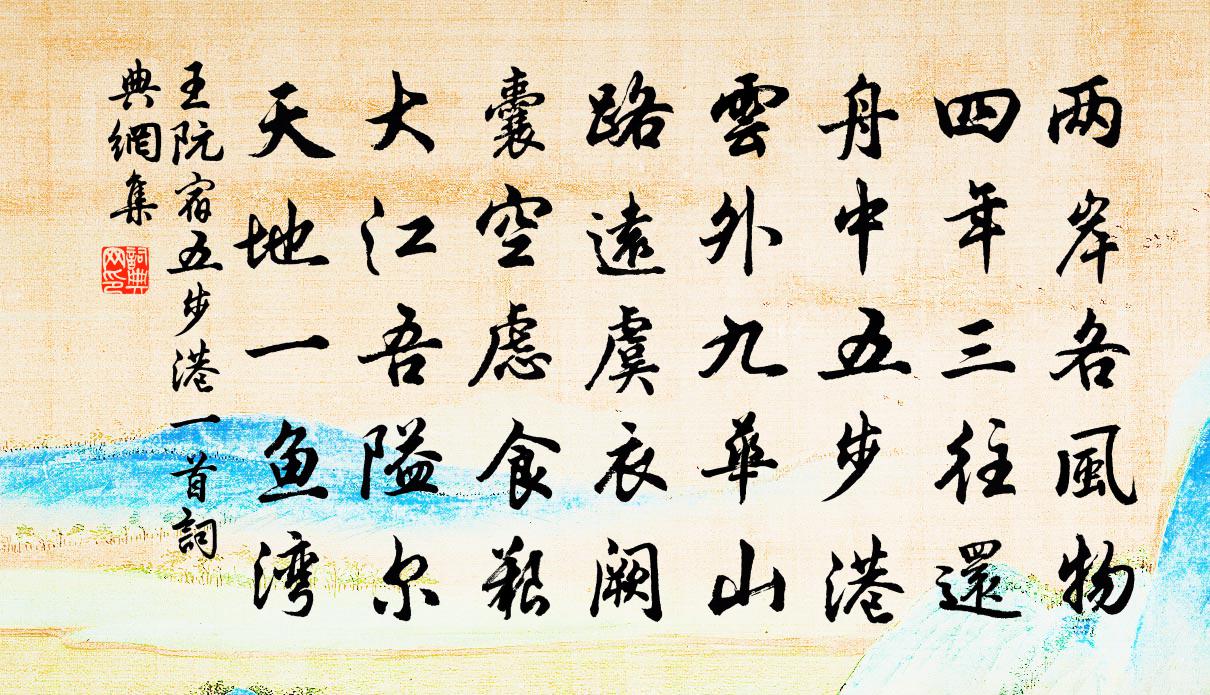 两岸各風物
四年三往還
舟中五步港
雲外九華山
路遠虞衣闕
囊空慮食艱
大江吾隘尔
天地一魚湾
王阮宿五步港一首詞
典網集
詞典
网印